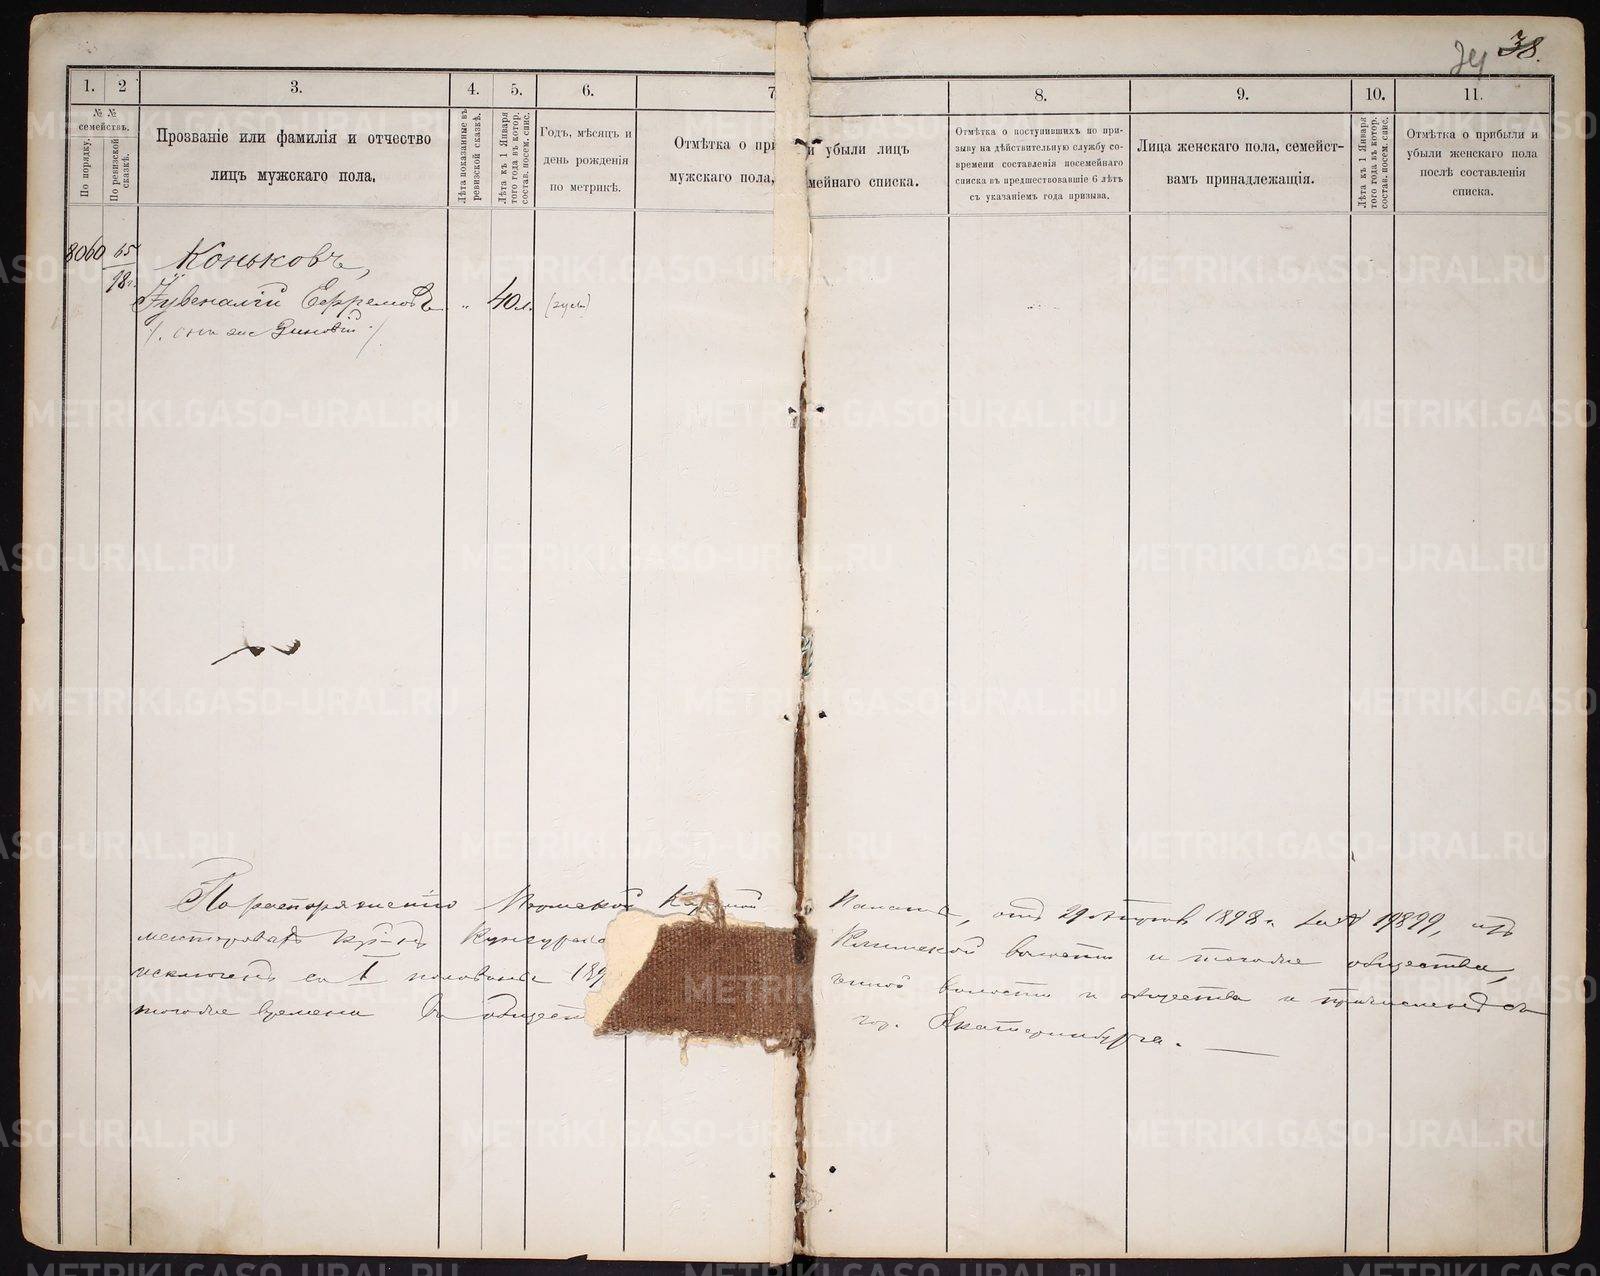 38.
1. 2 3. 4. 5. 6. 7 8. 9. 10. 11.
№ № семействъ.
По порядку.
По ревизской сказкѣ.
Прозваніе или фамилія и отчество
лицъ мужскаго пола.
Лѣта показанные въ ревизской сказкѣ.
Лѣта къ 1 Января того года въ котор. состав. посем. спис.
Годъ, мѣсяцъ и
день рожденія
по метрикѣ.
Отмѣтка о при и убыли лицъ
мужскаго пола, мейнаго списка.
Отмѣтка о поступившихъ по при-
зыву на дѣйствительную службу со-
времени составленія посемейнаго
списка въ предшествовавшіе 6 лѣтъ
съ указаніемъ года призыва.
Лица женскаго пола, семейст-
вамъ принадлежащія.
Лѣта къ 1 Января того года въ котор. состав. посем. спис.
Отмѣтка о прибыли и
убыли женскаго пола
послѣ составленія
списка.
8060 65 Коньковъ,
98 г. Іувеналій Ефремовъ „ 40 л.
/. онъ же Зиновій ./
По распоряженію Пермской Казенной Палаты, отъ 29 1898 г. за № 19899, изъ
Кунгурска волости и того же общества,
исключенъ со I половины 189 енной волости и общества и причисленъ съ
того же времени въ обществ гор. Екатеринбурга. —
METRIKI.GASO-URAL.RU